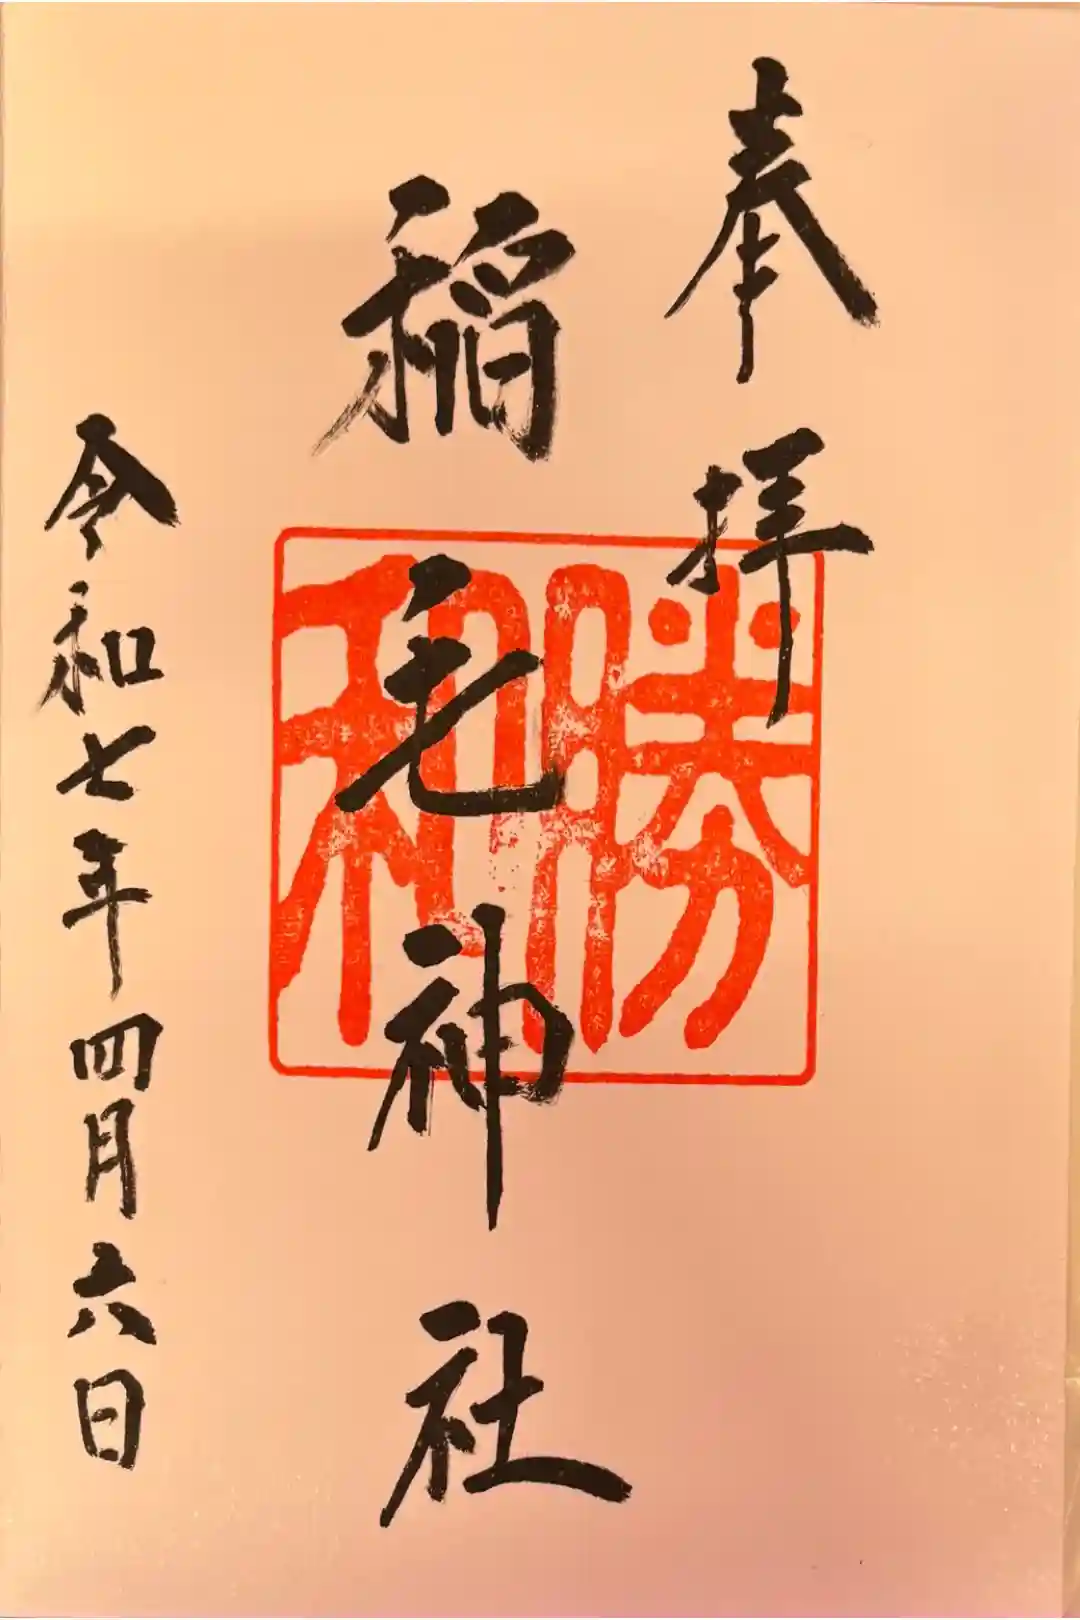 奉拝
勝和
稲毛神社
令和七年四月六日